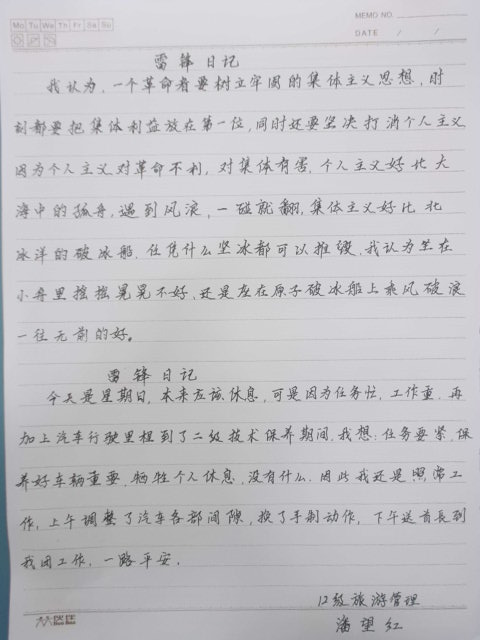 Mo Tu We Th Fr Sa Su
MEMO NO.
DATE / /
雷锋日记
我认为,一个革命者要树立牢固的集体主义思想,时
刻都要把集体利益放在第一位,同时还要坚决打消个人主义,
因为个人主义对革命不利,对集体有害,个人主义好比大
海中的孤舟,遇到风浪,一碰就翻,集体主义好比北
冰洋的破冰船,任凭什么坚冰都可以摧毁,我认为坐在
小舟里摇摇晃晃不好,还是在原子破冰船上乘风破浪
一往无前的好。
雷锋日记
今天是星期日,本来应该休息,可是因为任务忙,工作重,再
加上汽车行驶里程到了二级技术保养期间,我想:任务要紧,保
养好车辆重要,牺牲个人休息,没有什么.因此我还是照常工
作,上午调整了汽车各部间隙,换了手制动作,下午送首长到
我团工作,一路平安.
12级旅游管理
潘望红